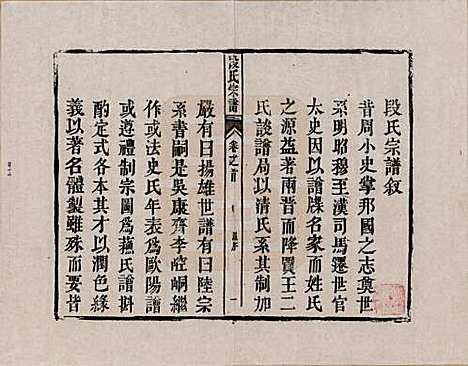 段氏宗譜敘
昔周小史掌邦國之志奠世
系明昭穆至漢司馬遷世官
太史因以譜牒名家而姓氏
之源益著兩晉而降賈王二
氏設譜局以清氏系其制加
段氏宗譜
卷之首
一
嚴有曰揚雄世譜有曰陸宗
系書嗣是吳康齊李崆峒繼
作或法史氏年表為歐陽譜
或遵禮制宗圖為蘇氏譜斟
酌定式各本其才以潤色緣
義以著名體製雖殊而要皆